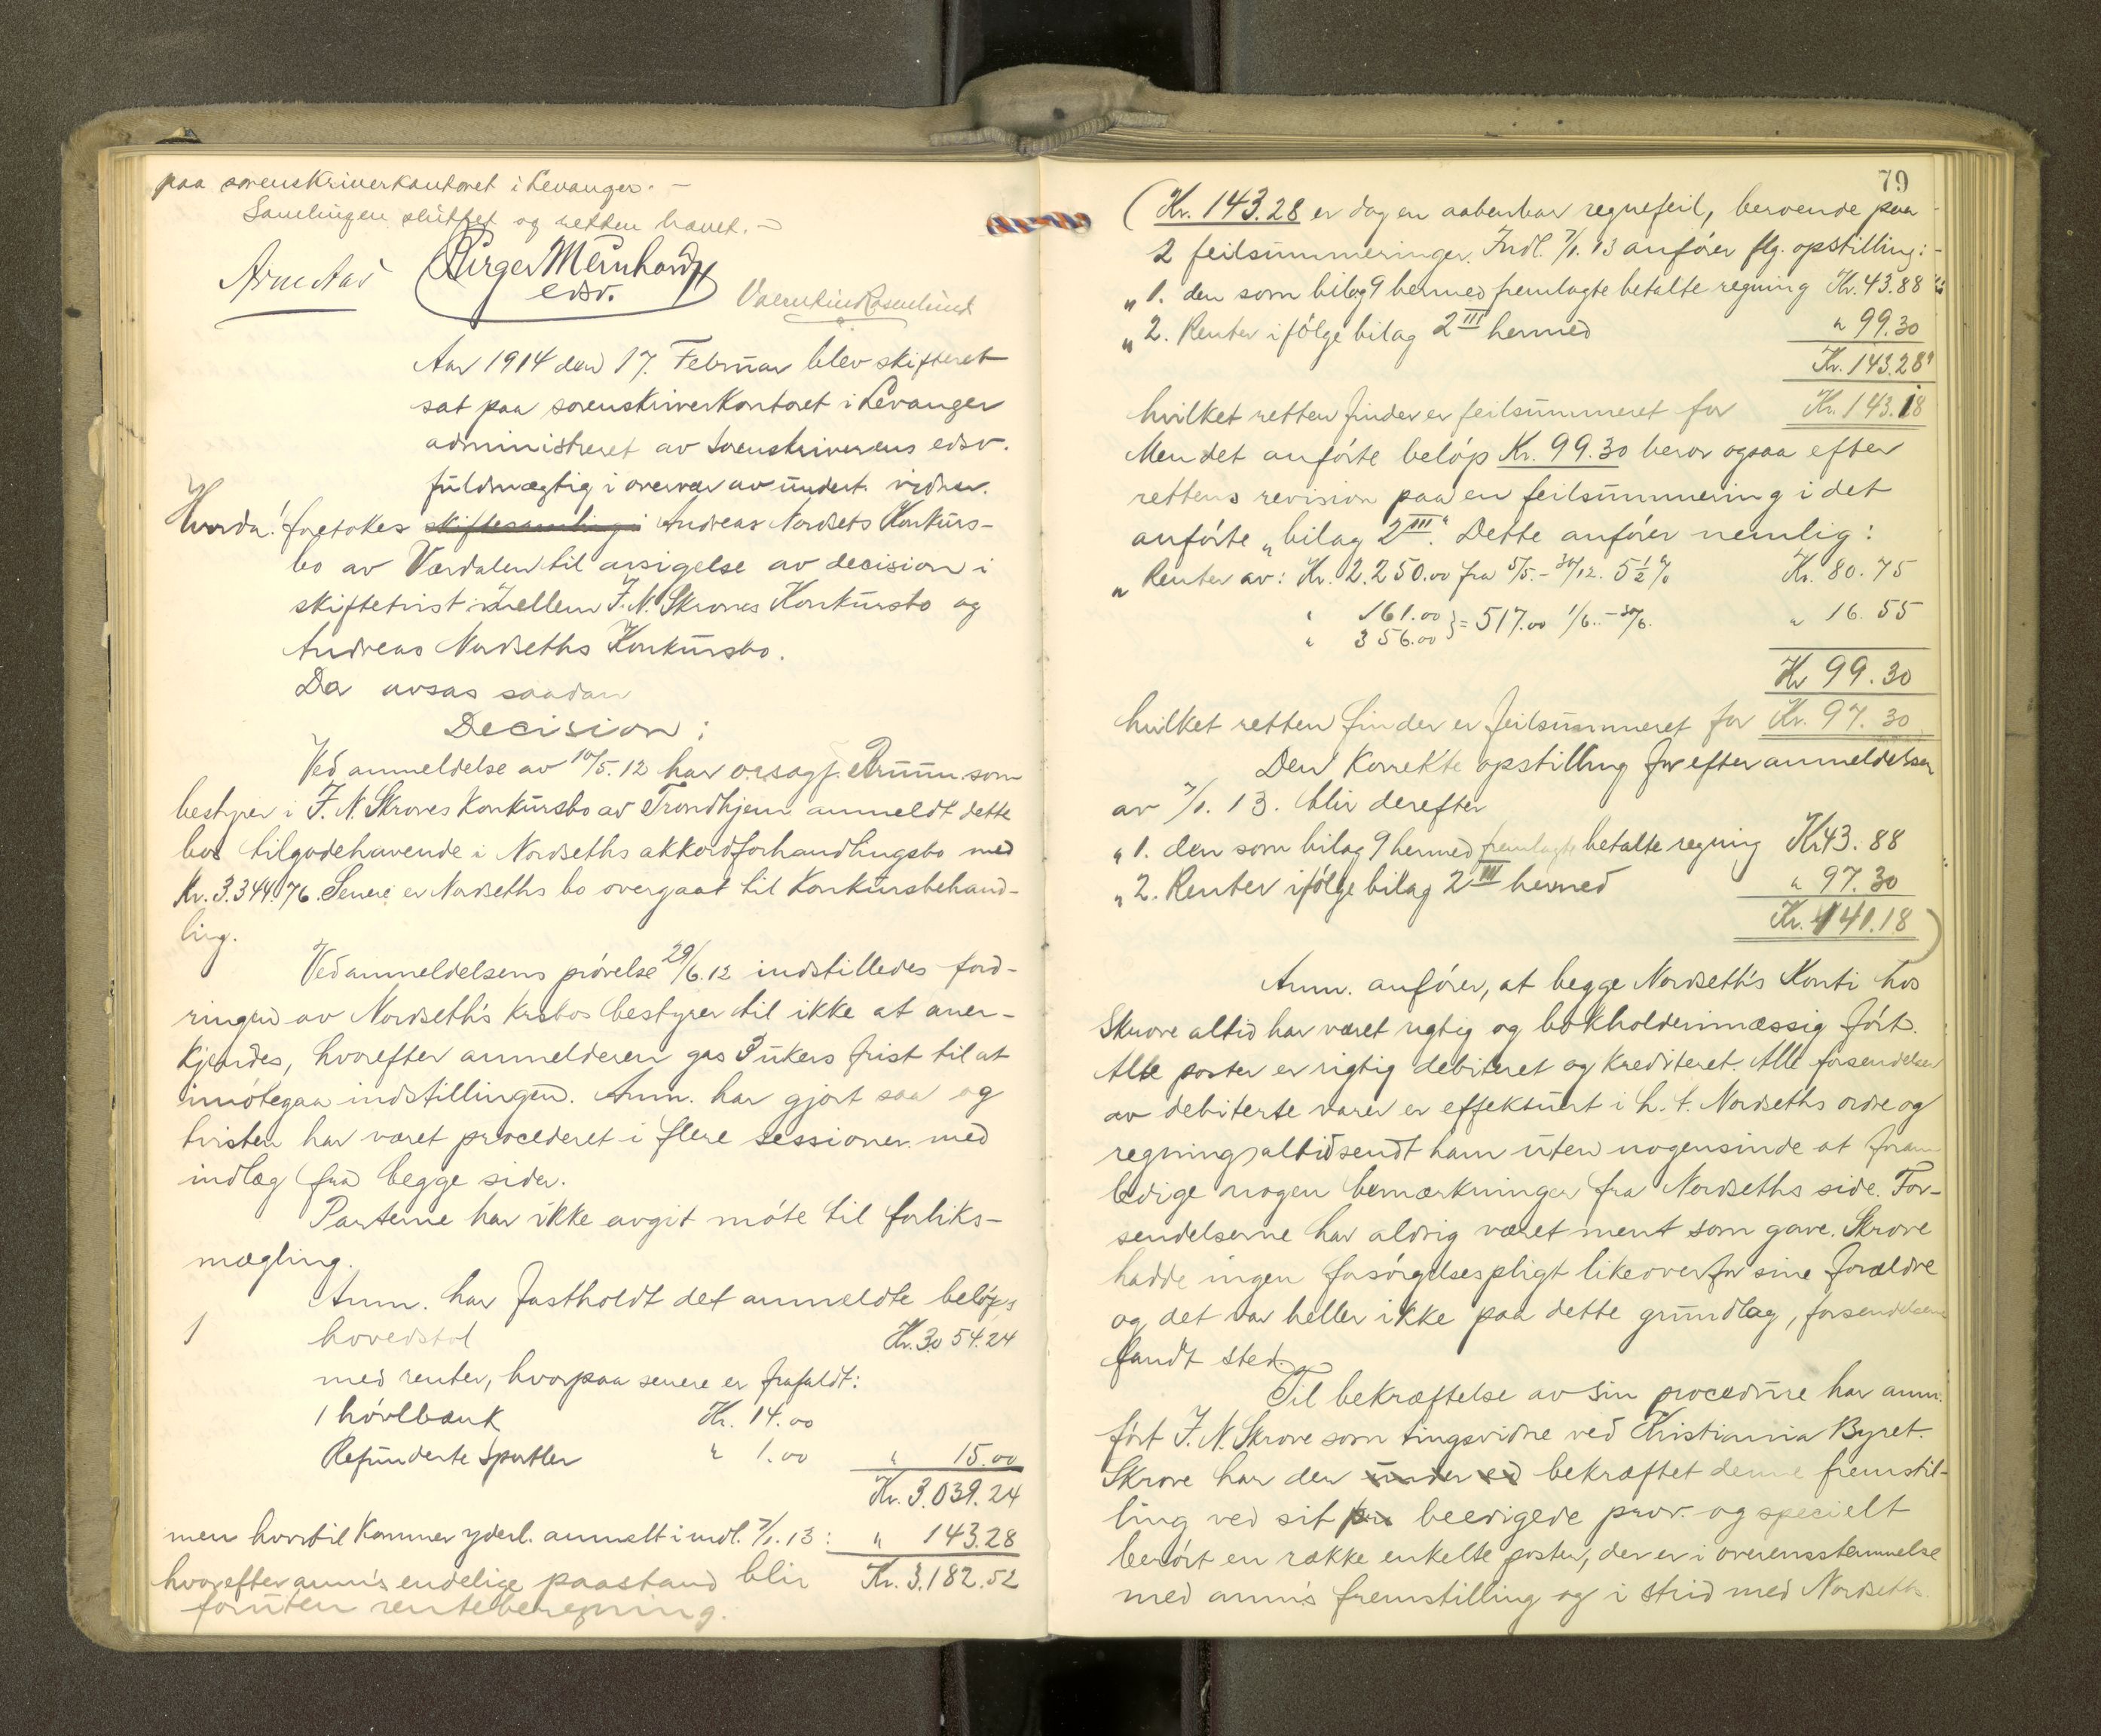 paa sorenskriverkontoret i Levanger. –
Samlingen sluttet og retten hævet. –
Arne Aas Birger Meinhardt
edsv.
Aar 1914 den 17. Februar blev skifteret
sat paa sorenskriverkontoret i Levanger
administreret av sorenskriverens edsv.
fuldmægtig i overvær av undert. vidner.
Hvorda: foretokes skiftesamling i Andreas Nordsets Konkurs-
bo av Værdalen til avsigelse av decision i
skiftetvist mellem J. N. Skroves Konkursbo og
Andreas Nordseths Konkursbo.
Da avsas saadan
Decision:
Ved anmeldelse av 10/5. 12 har o.r.sagf. Bruun som
bestyrer i J. N. Skroves Konkursbo av Trondhjem anmeldt dette
bos tilgodehavende i Nordseths akkordforhandlingsbo med
Kr. 3.344.76. Senere er Nordseths bo overgaat til Konkursbehand-
ling.
Ved anmeldelsens prövelse 29/6. 12 indstilledes ford-
ringen av Nordseth's krsbos bestyrer til ikke at aner-
kjendes, hvorefter anmelderen gas 3 ukers frist til at
imötegaa indstillingen. Anm. har gjort saa og
tvisten har været procederet i flere sessioner med
indlæg fra begge sider.
Parterne har ikke avgit möte til forliks-
mægling.
Anm. har fastholdt det anmeldte belöps
1 hovedstol Kr. 3054.24
med renter, hvorpaa senere er frafaldt:
1 hövlbænk Kr. 14.00
Refunderte sportler " 1.00 " 15.00
Kr. 3.039.24
men hvortil kommer yderl. anmelt i indl. 7/1. 13: " 143.28
hvorefter anm's endelige paastand blir Kr. 3.182.52
foruten renteberegning.
79
(Kr. 143.28 er dog en aabenbar regnefeil, beroende paa
2 feilsummeringer. Indl. 7/1. 13 anförer flg. opstilling: –
"1. den som bilag 9 hermed fremlagte betalte regning Kr. 43.88
"2. Renter ifölge bilag 2 III hermed " 99.30
Kr. 143.28"
hvilket retten finder er feilsummeret for Kr. 143.18
Men det anförte belöp Kr. 99.30 beror ogsaa efter
rettens revision paa en feilsummering i det
anförte "bilag 2 III". Dette anförer nemlig:
"Renter av: Kr. 2.250.00 fra 5/5. – 30/12. 5 1/2 % Kr. 80.75
" 161.00
" 356.00 } = 517.00 1/6. – 30/6. " 16.55
Kr 99.30
hvilket retten finder er feilsummeret for Kr. 97.30
Den korrekte opstilling for efteranmeldelsen
av 7/1. 13. blir derefter
"1. den som bilag 9 hermed fremlagte betalte regning Kr 43.88
"2. Renter ifölge bilag 2 III hermed " 97.30
Kr. 141.18)
Anm. anförer, at begge Nordseth's Konti hos
Skrove altid har været rigtig og bokholderimæssig fört.
Alle poster er rigtig debiteret og krediteret. Alle forsendelser
av debiterte varer er effektuert i h. t. Nordseths ordre og
regning altid sendt ham uten nogensinde at foran
ledige nogen bemærkninger fra Nordseths side. For-
sendelserne har aldrig været ment som gave. Skrove
hadde ingen forsörgelsespligt likeoverfor sine forældre
og det var heller ikke paa dette grundlag, forsendelserne
fandt sted.
Til bekræftelse av sin procedure har anm.
fört J. N. Skrove som tingsvidne ved Kristiania Byret.
Skrove har der under ed bekræftet denne fremstil-
ling ved sit beedigede prov. og specielt
berört en række enkelte poster, der er i overensstemmelse
med anm's fremstilling og i strid med Nordseths